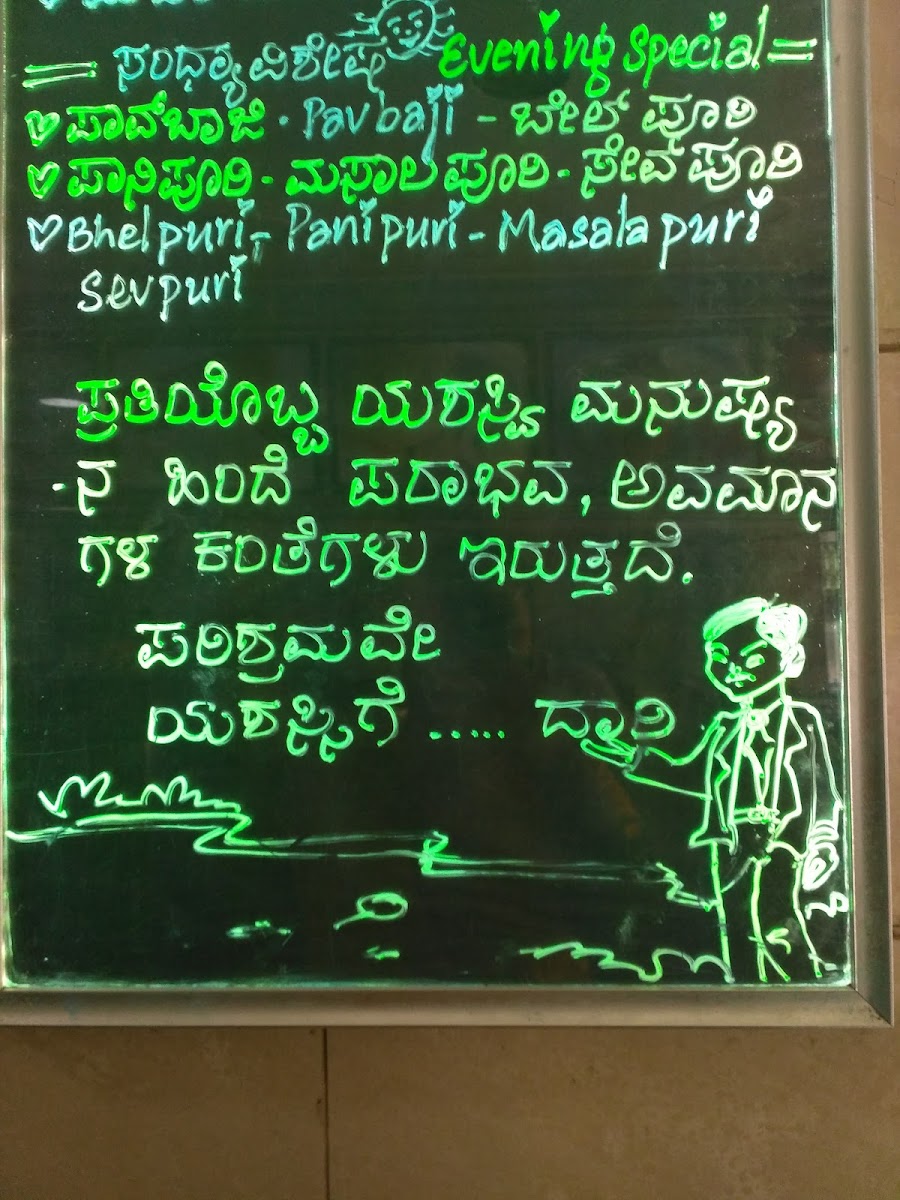 ಸಂಧ್ಯಾ ವಿಶೇಷ Evening Special
ಪಾವ್‌ಬಾಜಿ · Pavbaji - ಬೇಲ್ ಪೂರಿ
ಪಾನಿಪೂರಿ - ಮಸಾಲ ಪೂರಿ - ಸೇವ್ ಪೂರಿ
Bhelpuri - Panipuri - Masala puri
Sevpuri
ಪ್ರತಿಯೊಬ್ಬ ಯಶಸ್ವಿ ಮನುಷ್ಯ
-ನ ಹಿಂದೆ ಪರಾಭವ, ಅವಮಾನ
ಗಳ ಕಂತೆಗಳು ಇರುತ್ತದೆ.
ಪರಿಶ್ರಮವೇ
ಯಶಸ್ಸಿಗೆ ..... ದ್ವಾರಿ